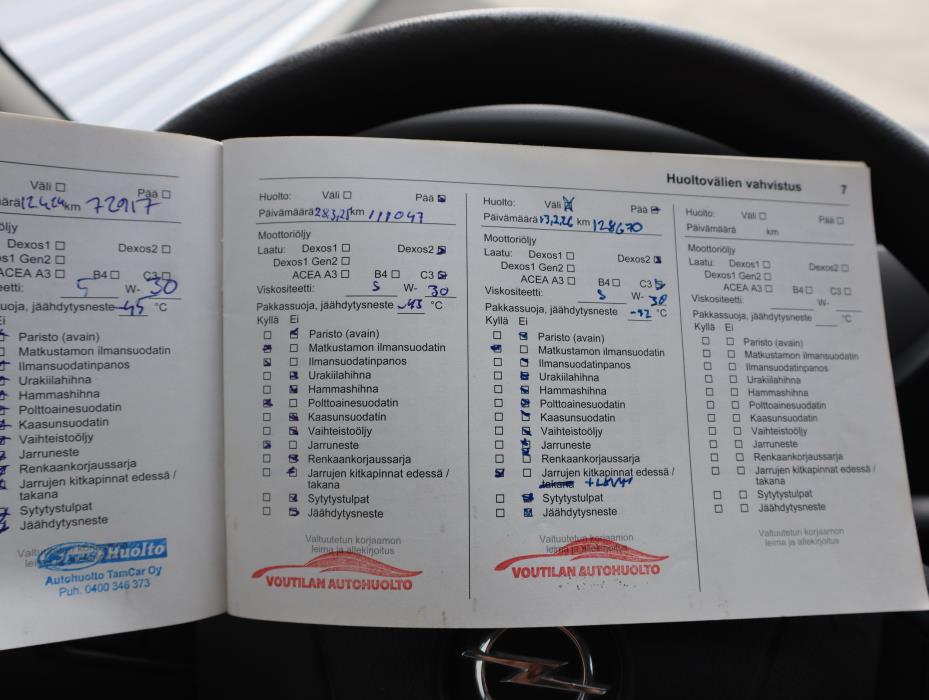 Huoltovälien vahvistus 7
Väli ☐ Pää ☐
määrä 12.4.24 km 72917
öljy
Dexos1 ☐ Dexos2 ☐
os1 Gen2 ☐
ACEA A3 ☐ B4 ☐ C3
teetti: 5 W- 30
suoja, jäähdytysneste -45 °C
Ei
Paristo (avain)
Matkustamon ilmansuodatin
Ilmansuodatinpanos
Urakiilahihna
Hammashihna
Polttoainesuodatin
Kaasunsuodatin
Vaihteistoöljy
Jarruneste
Renkaankorjaussarja
Jarrujen kitkapinnat edessä /
takana
Sytytystulpat
Jäähdytysneste
Huolto
Autohuolto TamCar Oy
Puh. 0400 346 373
Huolto: Väli ☐ Pää ☒
Päivämäärä 28.3.25 km 111047
Moottoriöljy
Laatu: Dexos1 ☐ Dexos2 ☒
Dexos1 Gen2 ☐
ACEA A3 ☐ B4 ☐ C3 ☒
Viskositeetti: 5 W- 30
Pakkassuoja, jäähdytysneste -43 °C
Kyllä Ei
☐ ☒ Paristo (avain)
☒ ☐ Matkustamon ilmansuodatin
☒ ☐ Ilmansuodatinpanos
☐ ☒ Urakiilahihna
☐ ☒ Hammashihna
☒ ☐ Polttoainesuodatin
☐ ☒ Kaasunsuodatin
☐ ☒ Vaihteistoöljy
☒ ☐ Jarruneste
☐ ☒ Renkaankorjaussarja
☐ ☒ Jarrujen kitkapinnat edessä /
takana
☐ ☒ Sytytystulpat
☐ ☒ Jäähdytysneste
Valtuutetun korjaamon
leima ja allekirjoitus
VOUTILAN AUTOHUOLTO
Huolto: Väli ☒ Pää
Päivämäärä 13.2.26 km 128670
Moottoriöljy
Laatu: Dexos1 ☐ Dexos2 ☒
Dexos1 Gen2 ☐
ACEA A3 ☐ B4 ☐ C3 ☒
Viskositeetti: 5 W- 30
Pakkassuoja, jäähdytysneste °C
Kyllä Ei
☐ ☒ Paristo (avain)
☒ ☐ Matkustamon ilmansuodatin
☐ ☒ Ilmansuodatinpanos
☐ ☒ Urakiilahihna
☐ ☒ Hammashihna
☐ ☒ Polttoainesuodatin
☐ ☒ Kaasunsuodatin
☐ ☒ Vaihteistoöljy
☐ ☒ Jarruneste
☐ ☐ Renkaankorjaussarja
☒ ☐ Jarrujen kitkapinnat edessä /
takana
☐ ☒ Sytytystulpat
☐ ☒ Jäähdytysneste
Valtuutetun korjaamon
leima ja allekirjoitus
VOUTILAN AUTOHUOLTO
Huolto: Väli ☐ Pää ☐
Päivämäärä km
Moottoriöljy
Laatu: Dexos1 ☐ Dexos2 ☐
Dexos1 Gen2 ☐
ACEA A3 ☐ B4 ☐ C3 ☐
Viskositeetti: W-
Pakkassuoja, jäähdytysneste °C
Kyllä Ei
☐ ☐ Paristo (avain)
☐ ☐ Matkustamon ilmansuodatin
☐ ☐ Ilmansuodatinpanos
☐ ☐ Urakiilahihna
☐ ☐ Hammashihna
☐ ☐ Polttoainesuodatin
☐ ☐ Kaasunsuodatin
☐ ☐ Vaihteistoöljy
☐ ☐ Jarruneste
☐ ☐ Renkaankorjaussarja
☐ ☐ Jarrujen kitkapinnat edessä /
takana
☐ ☐ Sytytystulpat
☐ ☐ Jäähdytysneste
Valtuutetun korjaamon
leima ja allekirjoitus